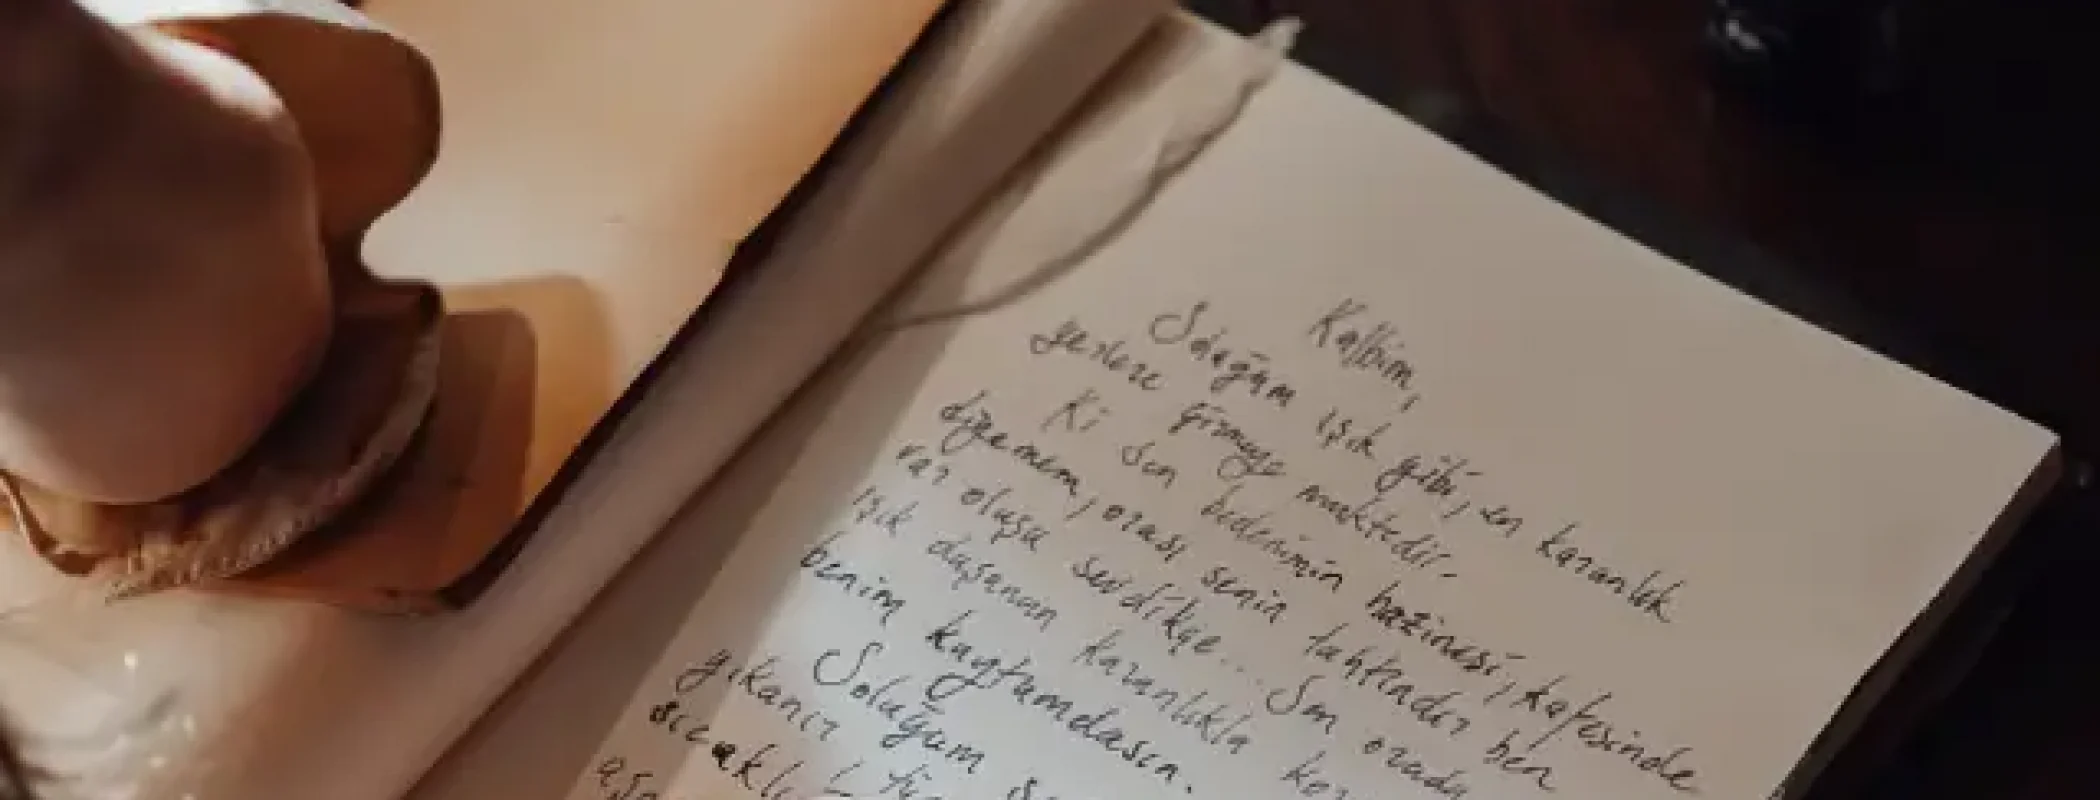 Kalbim,
Solağım ışık gibi, en karanlık
yerlere girmeye muktedir.
Ki sen bedenimin hazinesi, kafesinde
gizemem, orası senin tahtındır ben
var oluşu sevdikçe... Sen orada
ışık daşanan karanlıkla
benim kaytumdasın.
Soluğum
yıkanır
sıcaklı